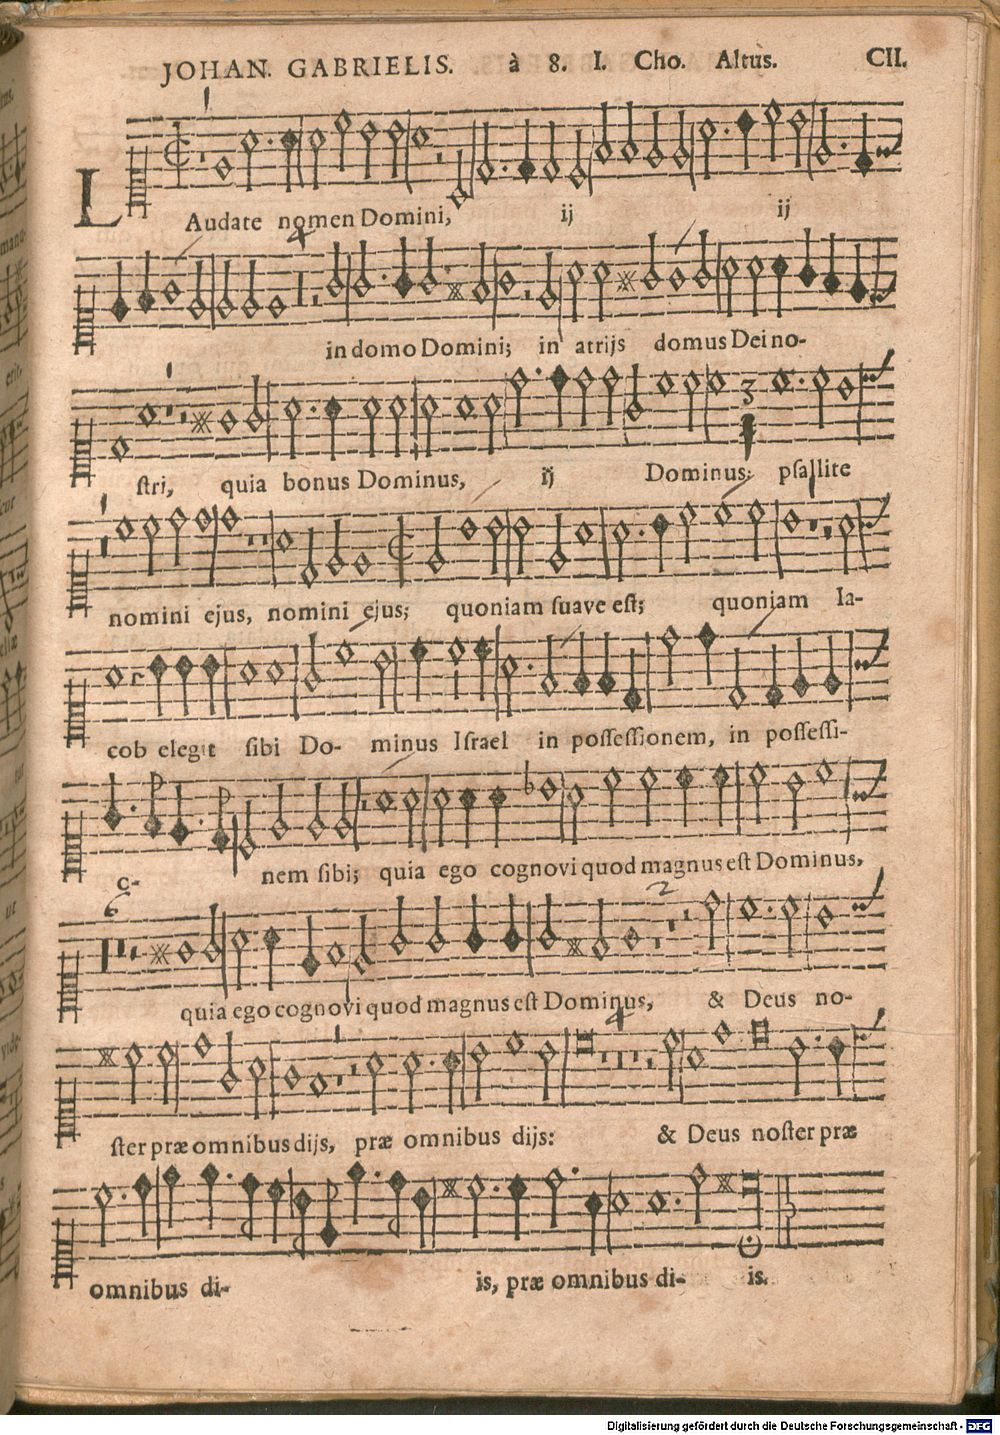 JOHAN. GABRIELIS. à 8. I. Cho. Altus. CII.
LAudate nomen Domini, ij ij
in domo Domini; in atrijs domus Dei no-
ſtri, quia bonus Dominus, ij Dominus: pſallite
nomini ejus, nomini ejus; quoniam ſuave eſt; quoniam Ia-
cob elegit ſibi Do- minus Iſrael in poſſeſſionem, in poſſeſſi-
c- nem ſibi; quia ego cognovi quod magnus eſt Dominus,
quia ego cognovi quod magnus eſt Dominus, & Deus no-
ſter præ omnibus dijs, præ omnibus dijs: & Deus noſter præ
omnibus di- is, præ omnibus di- is.
Digitalisierung gefördert durch die Deutsche Forschungsgemeinschaft - DFG